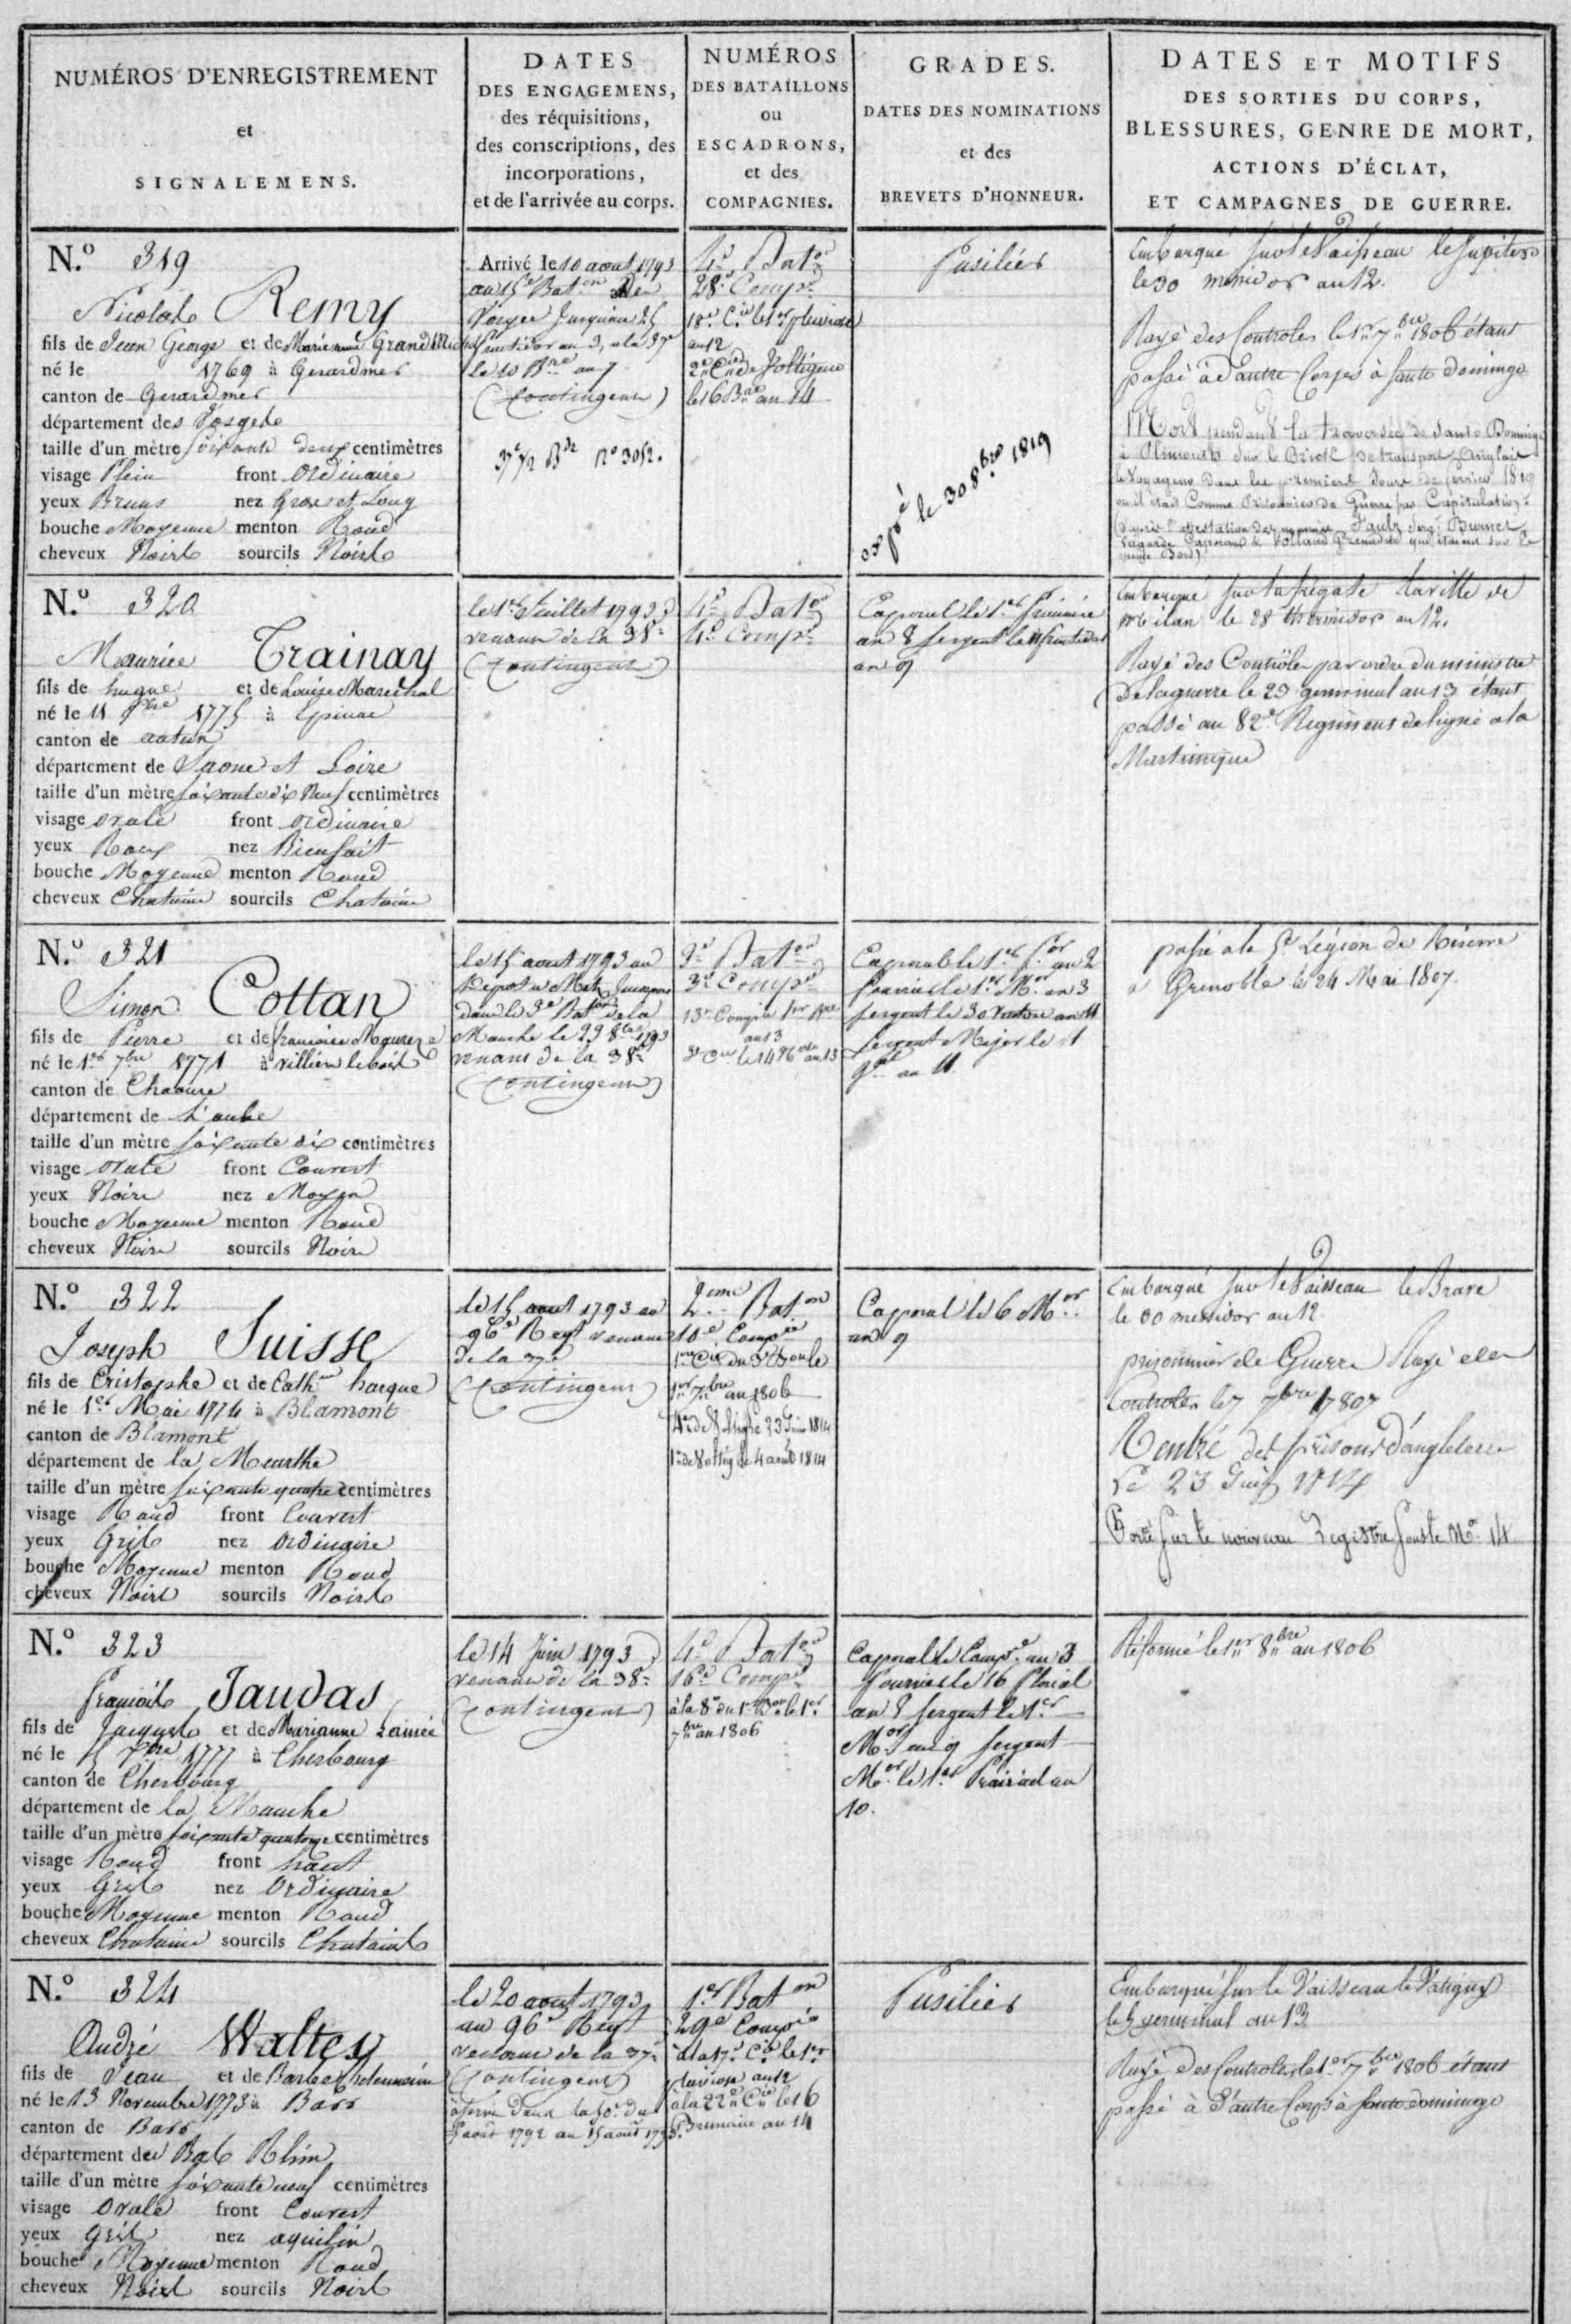 NUMÉROS D'ENREGISTREMENT
et
SIGNALEMENS.
DATES
DES ENGAGEMENS,
des réquisitions,
des conscriptions, des
incorporations,
et de l'arrivée au corps.
NUMÉROS
DES BATAILLONS
ou
ESCADRONS,
et des
COMPAGNIES.
GRADES.
DATES DES NOMINATIONS
et des
BREVETS D'HONNEUR.
DATES ET MOTIFS
DES SORTIES DU CORPS,
BLESSURES, GENRE DE MORT,
ACTIONS D'ÉCLAT,
ET CAMPAGNES DE GUERRE.
N.o 319
Nicolas Remy
fils de Jean George et de Marie anne Grand
né le 1769 à Gerardmer
canton de Gerardmer
département des Vosges
taille d'un mètre soixante deux centimètres
visage Plein front Ordinaire
yeux Bruns nez Gros et Long
bouche Moyenne menton Rond
cheveux Noirs sourcils Noirs
Arrivé le 10 aout 1793
au 15e Baton des
Vosges
fructidor an 3, a la 37e
le 10 Bre an 7
(Contingent)
37e 1/2 Bde No 3052.
4e Baton
28e Compie
18e Cie le 1er pluviose
an 12
2e Cie de Voltigeurs
le 16 Bre an 14
Fusilier
expé le 30 8bre 1819
Embarqué sur le Vaisseau le Jupiter
le 30 messidor an 12.
Rayé des Controles le 1er 7bre 1806 étant
passé à d'autre Corps à Santo domingo
Mort pendant la traversée de Santo Domingo
à Plimouth sur le Brick de transport Anglais
le Voyageur dans les premiers Jours de fevrier 1810
ou il était Comme Prisonnier de Guerre par Capitulation.
(d'après l'attestation des nommés Sergt Burnet
Lagarde Caporaux & Volland Grenadier qui étaient sur le
même Bord)
N.o 320
Maurice Trainay
fils de hugue et de Louise Marechal
né le 11 9bre 1775 à Epinac
canton de autun
département de Saone et Loire
taille d'un mètre soixante dix Neuf centimètres
visage ovale front ordinaire
yeux Roux nez Bienfait
bouche Moyenne menton Rond
cheveux Chatains sourcils Chatains
le 1er Juillet 1793
venant de la 38e
(Contingent)
4e Baton
4e Compie
Caporal le 1er frimaire
an 8 sergent le fructidor
an 9
Embarqué sur la fregate la ville de
Milan le 28 thermidor an 12.
Rayé des Contrôles par ordre du ministre
de la guerre le 29 germinal an 13 étant
passé au 82e Regiment de ligne a la
Martinique
N.o 321
Simon Cottan
fils de Pierre et de francoise
né le 1er 7bre 1771 à Villiers le bois
canton de Chaource
département de L'aube
taille d'un mètre soixante dix centimètres
visage ovale front Couvert
yeux Noirs nez Moyen
bouche Moyenne menton Rond
cheveux Noirs sourcils Noirs
le 15 aout 1793 au
Dépot a Metz Incorporé
dans le 3e Baton de la
Manche le 29 8bre 1793
venant de la 38e
(Contingent)
3e Baton
3e Compie
13e Compie 1er
an 13
3e Cie le 14 an 13
Caporal le 1er an 2
fourrier le 1er Mor an 3
sergent le 30 an 11
sergent Major le 1
Gal an 11.
passé a la 5e Légion de Réserve
a Grenoble le 24 Mai 1807.
N.o 322
Joseph Suisse
fils de Cristophe et de Cathne harque
né le 1er Mai 1774 à Blamont
canton de Blamont
département de la Meurthe
taille d'un mètre soixante quatre centimètres
visage Rond front Couvert
yeux Gris nez Ordinaire
bouche Moyenne menton Rond
cheveux Noirs sourcils Noirs
le 15 aout 1793 au
96e Regt venant
de la 37e
(Contingent)
2eme Baton
10e Compie
1er 7bre an 1806
4e de Voltig. 23 Juin 1814
1re de Voltig. le 4 aout 1814
Caporal le 6 Mor
an 9
Embarqué sur le Vaisseau le Brave
le 00 messidor an 12.
prisonnier de Guerre Rayé des
Controles le 7 7bre 1807
Rentré des prisons d'angleterre
Le 23 Juin 1814
Porté sur le nouveau Registre sous le No 14
N.o 323
francois Jaudas
fils de Jacques et de Marianne Lainée
né le 5 7bre 1777 à Cherbourg
canton de Cherbourg
département de la Manche
taille d'un mètre soixante quatorze centimètres
visage Rond front haut
yeux Gris nez Ordinaire
bouche Moyenne menton Rond
cheveux Chatains sourcils Chatains
le 14 Juin 1793
venant de la 38e
(Contingent)
4e Baton
16e Compie
à la 8e du 1er Bon le 1er
7bre an 1806
Caporal le an 3
fourrier le 16 floréal
an 8 sergent le 1er
Mor an 9 sergent
Mor le 1er Prairial an
10.
Réformé le 1er 8bre an 1806
N.o 324
André Walter
fils de Jean et de Barbe
né le 13 Novembre 1773 à Barr
canton de Barr
département du Bas Rhin
taille d'un mètre soixante neuf centimètres
visage Ovale front Couvert
yeux Gris nez aquilin
bouche Moyenne menton Rond
cheveux Noirs sourcils Noirs
le 20 aout 1793
au 96e Regt
venant de la 37e
(Contingent)
à servi dans la 50e du
5 août 1792 au 15 aout 1793.
1er Baton
29e Compie
à la 17e Cie le 1er
pluviose an 12
à la 22e Cie le 16
Brumaire an 14
Fusilier
Embarqué sur le Vaisseau le Vatigny
le 5 germinal an 13
Rayé des Controles le 1er 7bre 1806 étant
passé à d'autre Corps à Santo domingo